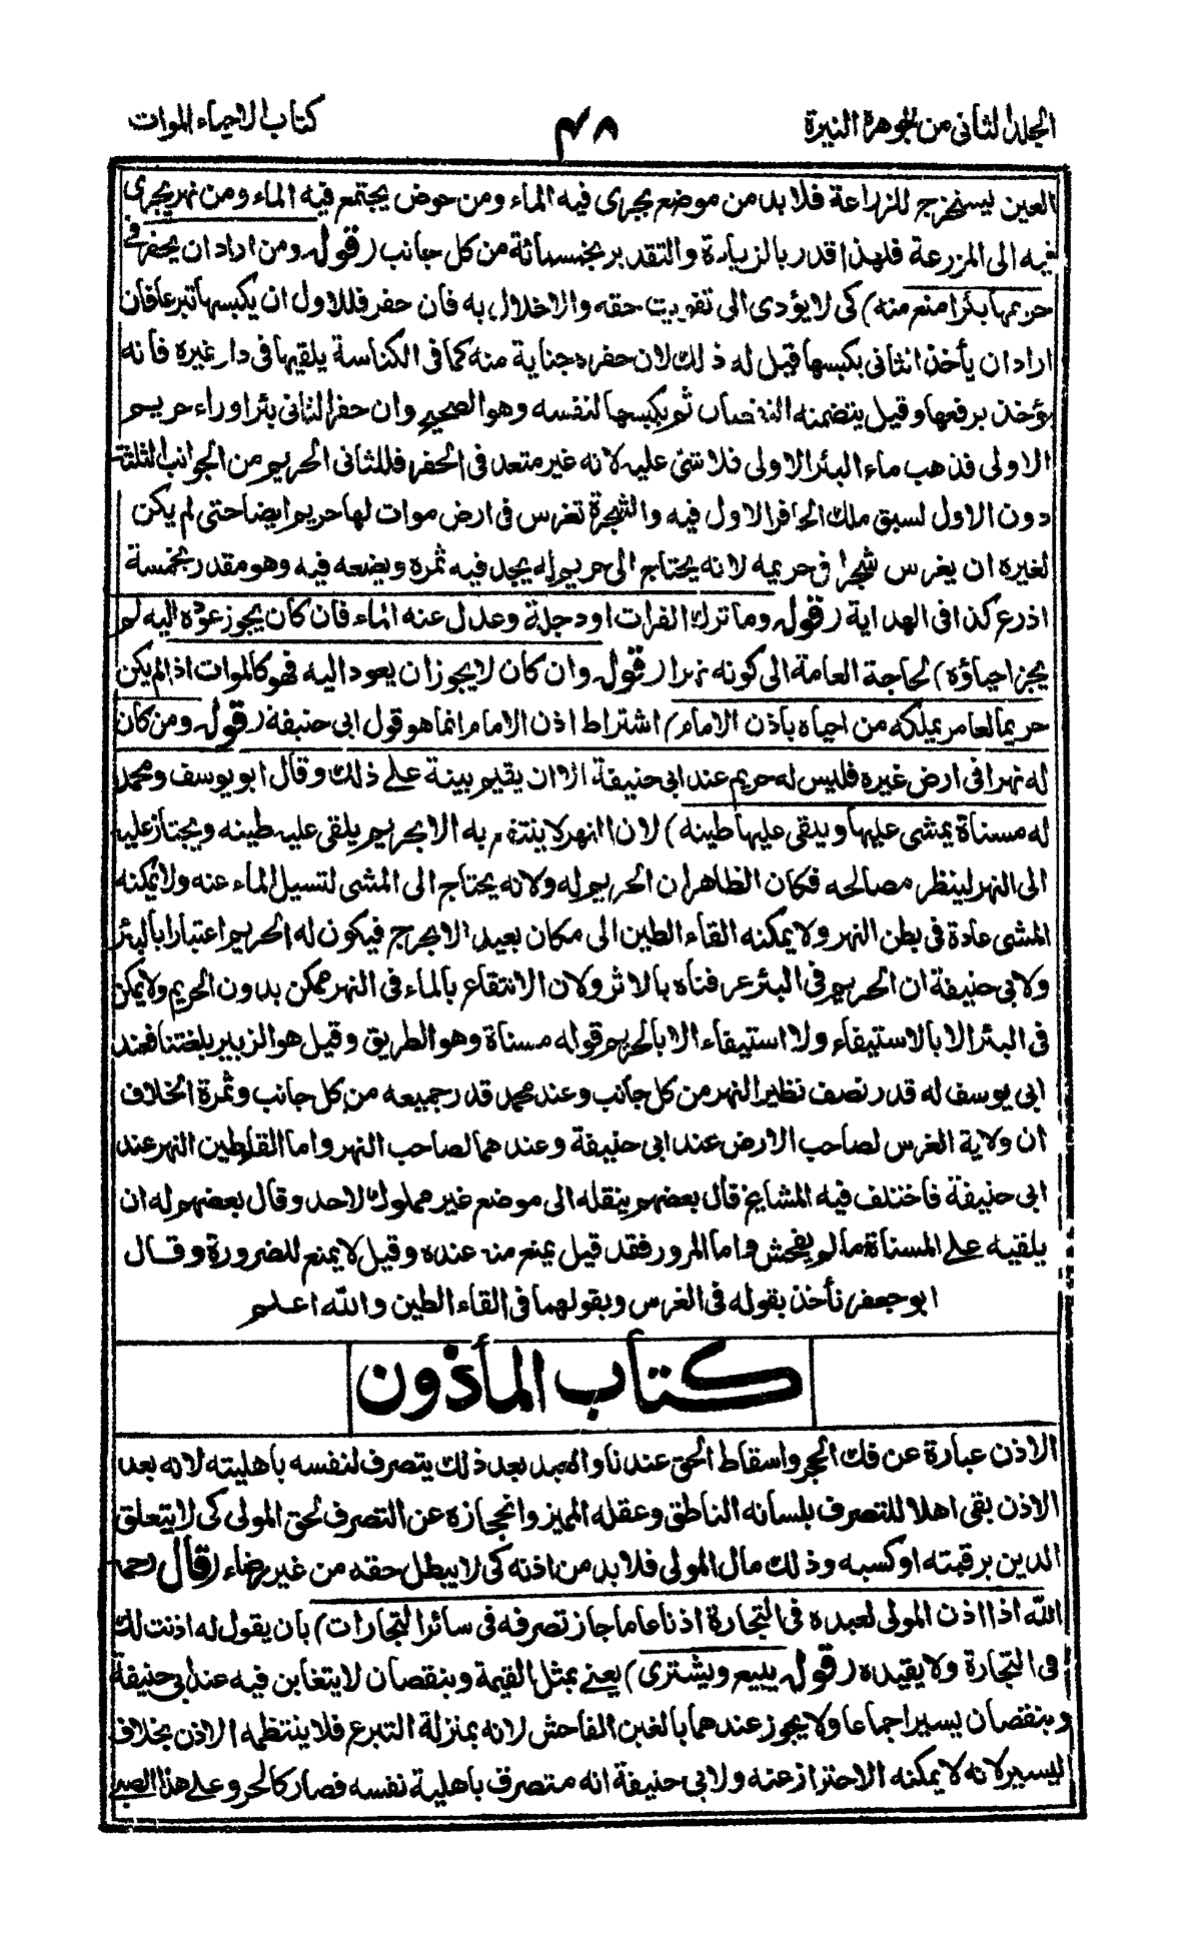 المجلد الثانى من الجوهرة النيرة
٤٨
كتاب الاحياء الموات
العين ليستخرج للزراعة فلا بد من موضع يجرى فيه الماء ومن حوض يجتمع فيه الماء ومن نهر يجرى
فيه الى المزرعة فلهذا قدر بالزيادة والتقدير بخمسمائة من كل جانب (قوله ومن اراد ان يحفر فى
حريمها بئرا منع منه) كى لا يؤدى الى تفويت حقه والاخلال به فان حفر فللاول ان يكبسها تبرعا فان
اراد ان يأخذ الثانى بكبسها قيل له ذلك لان حفره جناية منه كما فى الكناسة يلقيها فى دار غيره فانه
يؤخذ برفعها وقيل يتضمنه النقصان ثم يكبسها لنفسه وهو الصحيح وان حفر الثانى بئرا وراء حريم
الاولى فذهب ماء البئر الاولى فلا شئ عليه لانه غير متعد فى الحفر فللثانى الحريم من الجوانب الثلثة
دون الاول لسبق ملك الحافر الاول فيه والشجرة تغرس فى ارض موات لها حريم ايضا حتى لم يكن
لغيره ان يغرس شجرا فى حريمه لانه يحتاج الى حريم له يجد فيه ثمره ويضعه فيه وهو مقدر بخمسة
اذرع كذا فى الهداية (قوله وما ترك الفرات او دجلة وعدل عنه الماء فان كان يجوز عوده اليه لم
يجز احياؤه) لحاجة العامة الى كونه نهرا (قوله وان كان لا يجوز ان يعود اليه فهو كالموات اذا لم يكن
حريما لعامر يملكه من احياه باذن الامام) اشتراط اذن الامام انما هو قول ابى حنيفة (قوله ومن كان
له نهر فى ارض غيره فليس له حريم عند ابى حنيفة الا ان يقيم بينة على ذلك وقال ابو يوسف ومحمد
له مسناة يمشى عليها ويلقى عليها طينه) لان النهر لا ينتفع به الا بحريم يلقى عليه طينه ويجتاز عليه
الى النهر لينظر مصالحه فكان الظاهر ان الحريم له ولانه يحتاج الى المشى لتسييل الماء عنه ولا يمكنه
المشى عادة فى بطن النهر ولا يمكنه القاء الطين الى مكان بعيد الا بحرج فيكون له الحريم اعتبارا بالبئر
ولابى حنيفة ان الحريم فى البئر عرفناه بالاثر ولان الانتفاع بالماء فى النهر ممكن بدون الحريم ولا يمكن
فى البئر الا بالاستيفاء ولا استيفاء الا بالحريم قوله مسناة وهو الطريق وقيل هو الزبير بلغتنا فعند
ابى يوسف له قدر نصف نظير النهر من كل جانب وعند محمد قدر جميعه من كل جانب وثمرة الخلاف
ان ولاية الغرس لصاحب الارض عند ابى حنيفة وعندهما لصاحب النهر واما القاء طين النهر عند
ابى حنيفة فاختلف فيه المشايخ قال بعضهم ينقله الى موضع غير مملوك لاحد وقال بعضهم له ان
يلقيه على المسناة ما لم يفحش واما المرور فقد قيل يمنع منه عنده وقيل لا يمنع للضرورة وقال
ابو جعفر نأخذ بقوله فى الغرس وبقولهما فى القاء الطين والله اعلم
كتاب المأذون
الاذن عبارة عن فك الحجر واسقاط الحق عندنا والعبد بعد ذلك يتصرف لنفسه باهليته لانه بعد
الاذن بقى اهلا للتصرف بلسانه الناطق وعقله المميز وانحجازه عن التصرف لحق المولى كى لا يتعلق
الدين برقبته او كسبه وذلك مال المولى فلا بد من اذنه كى لا يبطل حقه من غير رضاه (قال رحمه
الله اذا اذن المولى لعبده فى التجارة اذنا عاما جاز تصرفه فى سائر التجارات) بان يقول له اذنت لك
فى التجارة ولا يقيده (قوله يبيع ويشترى) يعنى بمثل القيمة وبنقصان لا يتغابن فيه عند ابى حنيفة
وبنقصان يسير اجماعا ولا يجوز عندهما بالغبن الفاحش لانه بمنزلة التبرع فلا ينتظمه الاذن بخلاف
اليسير لانه لا يمكنه الاحتراز عنه ولابى حنيفة انه متصرف باهلية نفسه فصار كالحر وعلى هذا الصبى